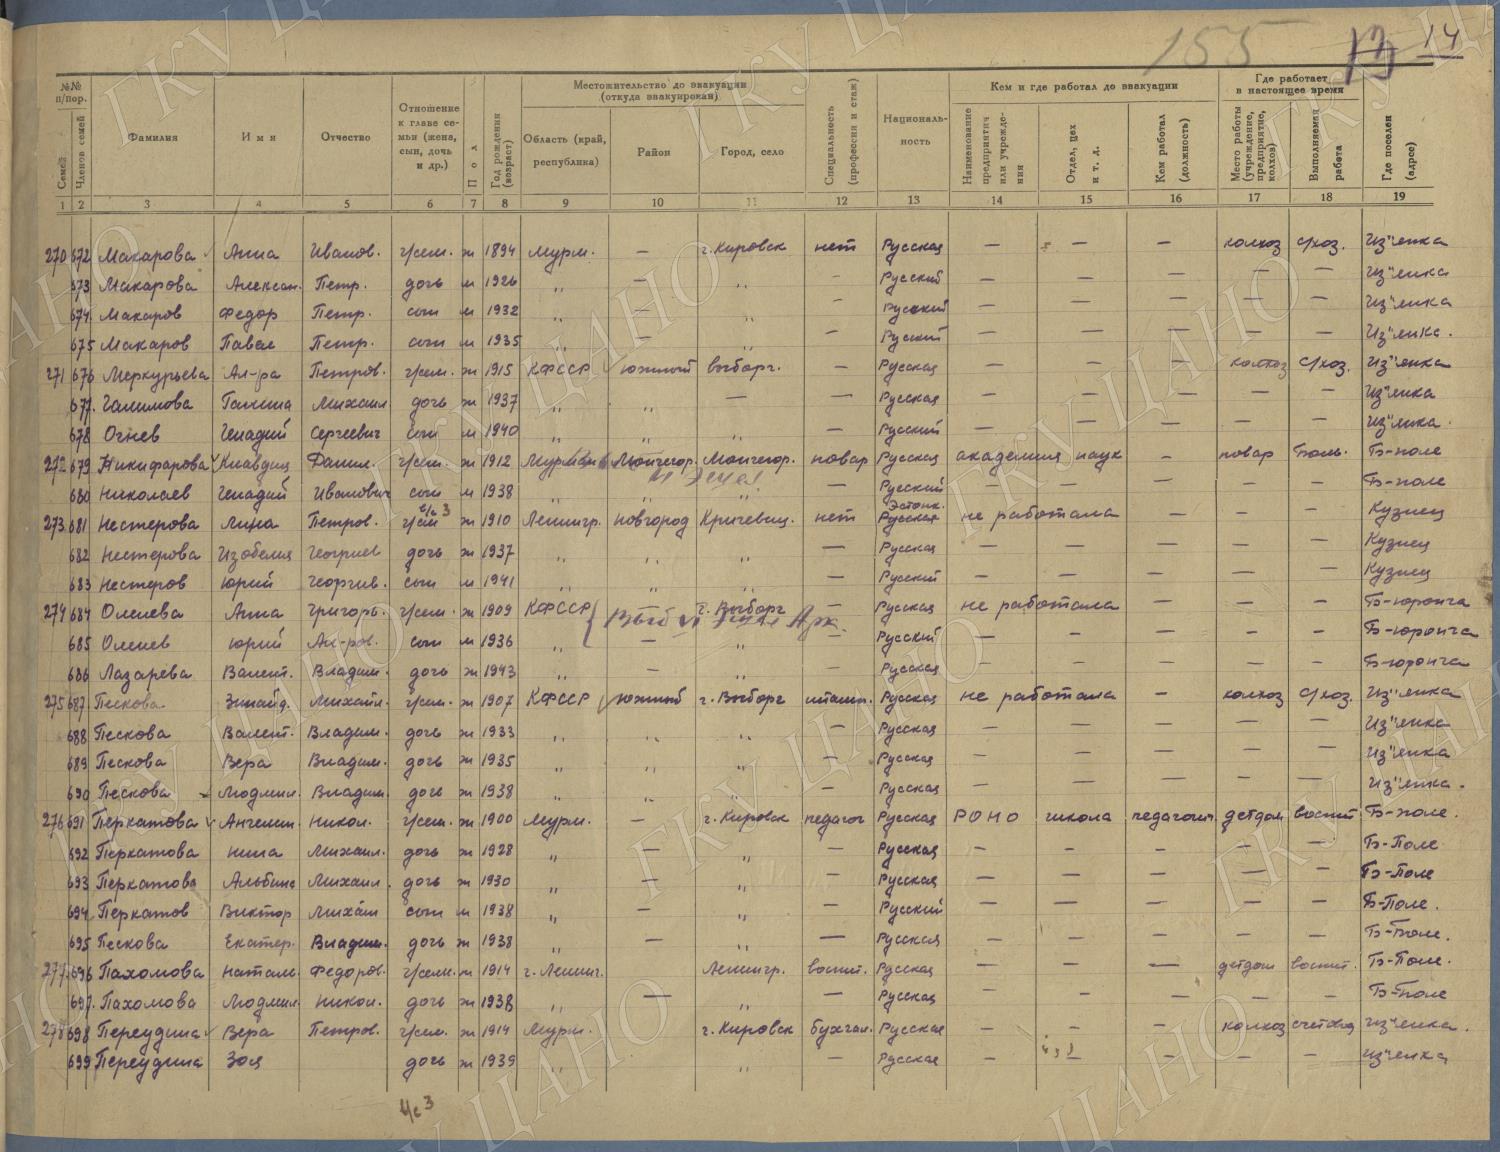 155 13 14
№№ п/пор. Местожительство до эвакуации (откуда эвакуирован) Кем и где работал до эвакуации Где работает в настоящее время
Семей Членов семей Фамилия Имя Отчество Отношение к главе семьи (жена, сын, дочь и др.) Пол Год рождения (возраст) Область (край, республика) Район Город, село Специальность (профессия и стаж) Националь-ность Наименование предприятия или учреждения Отдел, цех и т. д. Кем работал (должность) Место работы (учреждение, предприятие, колхоз) Выполняемая работа Где поселен (адрес)
1 2 3 4 5 6 7 8 9 10 11 12 13 14 15 16 17 18 19
270 672 Макарова Анна Иванов. г/сем. ж 1894 Мурм. — г. Кировск нет Русская — — — колхоз с/хоз. Из"янка
673 Макарова Алексан. Петр. дочь м 1926 „ — „ — Русский — — — — — Из"янка
674 Макаров Федор Петр. сын м 1932 „ — „ — Русский — — — — — Из"янка
675 Макаров Павел Петр. сын м 1935 „ — „ — Русский — — — — — Из"янка.
271 676 Меркурьева Ал-ра Петров. г/сем. ж 1915 КФССР южный выборг. — Русская — — — колхоз с/хоз. Из"янка
677. Галимова Галина Михаил дочь ж 1937 „ „ — — Русская — — — — — Из"янка
678 Огнев Генадий Сергеевич сын м 1940 „ „ „ — Русский — — — — — Из"янка.
272 679 Никифарова Клавдия Данил. г/сем. ж 1912 Мурманс Мончегор. Мончегор. повар Русская академия наук — повар Боль. Б-поле
680 Николаев Генадий Иванович сын м 1938 „ „ „ — Русский — — — — — Б-поле
ч/с 3 Эстонк.
273. 681 Нестерова Лина Петров. г/сем ж 1910 Ленингр. новгород Кричевиц. нет Русская не работала — — — Кузнец
682 Нестерова Изобелия Георгиев дочь ж 1937 „ „ „ — Русская — — — — — Кузнец
683 Нестеров Юрий Георгив. сын м 1941 „ „ „ — Русский — — — — — Кузнец
274 684 Олелева Анна Григорь. г/сем. ж 1909 КФССР г. Выборг — Русская не работала — — — Б-юронга
685 Олелев Юрий Ал-ров. сын м 1936 „ — — Русский — — — — — Б-юронга
686 Лазарева Валент. Владим. дочь ж 1943 „ — „ — Русская — — — — — Б-юронга
275 687. Пескова Зинайд. Михайл. г/сем. ж 1907 КФССР южный г. Выборг штамп. Русская не работала — колхоз с/хоз. Из"янка
688 Пескова Валент. Владим. дочь ж 1933 „ „ „ — Русская — — — — — Из"янка
689 Пескова Вера Владим. дочь ж 1935 „ „ „ — Русская — — — — — Из"янка
690 Пескова Людмил. Владим. дочь ж 1938 „ „ „ — Русская — — — — — Из"янка.
276 691 Перкатова Ангелин. Никол. г/сем. ж 1900 Мурм. — г. Кировск педагог Русская РОНО школа педагогич детдом воспит Б-поле.
692 Перкатова Нина Михаил. дочь ж 1928 „ — „ — Русская — — — — — Б-Поле
693 Перкатова Альбина Михаил. дочь ж 1930 „ — „ — Русская — — — — — Б-Поле
694. Перкатов Виктор Михаил сын м 1938 „ — „ — Русский — — — — — Б-Поле.
695 Пескова Екатер. Владим. дочь ж 1938 „ — „ — Русская — — — — — Б-Поле.
277. 696 Пахомова Натал. Федоров. г/сем. ж 1914 г. Ленинг. Ленингр. воспит. Русская — — — детдом воспит. Б-Поле.
697. Пахомова Людмил. Никол. дочь ж 1938 „ — „ — Русская — — — — — Б-поле
278 698 Переудина Вера Петров. г/сем. ж 1914 Мурм. г. Кировск бухгал. Русская — — — колхоз счетовод Из"янка.
699 Переудина Зоя дочь ж 1939 „ „ — Русская — — — — — Из"янка
ч/с 3
ГКУ ЦАНО